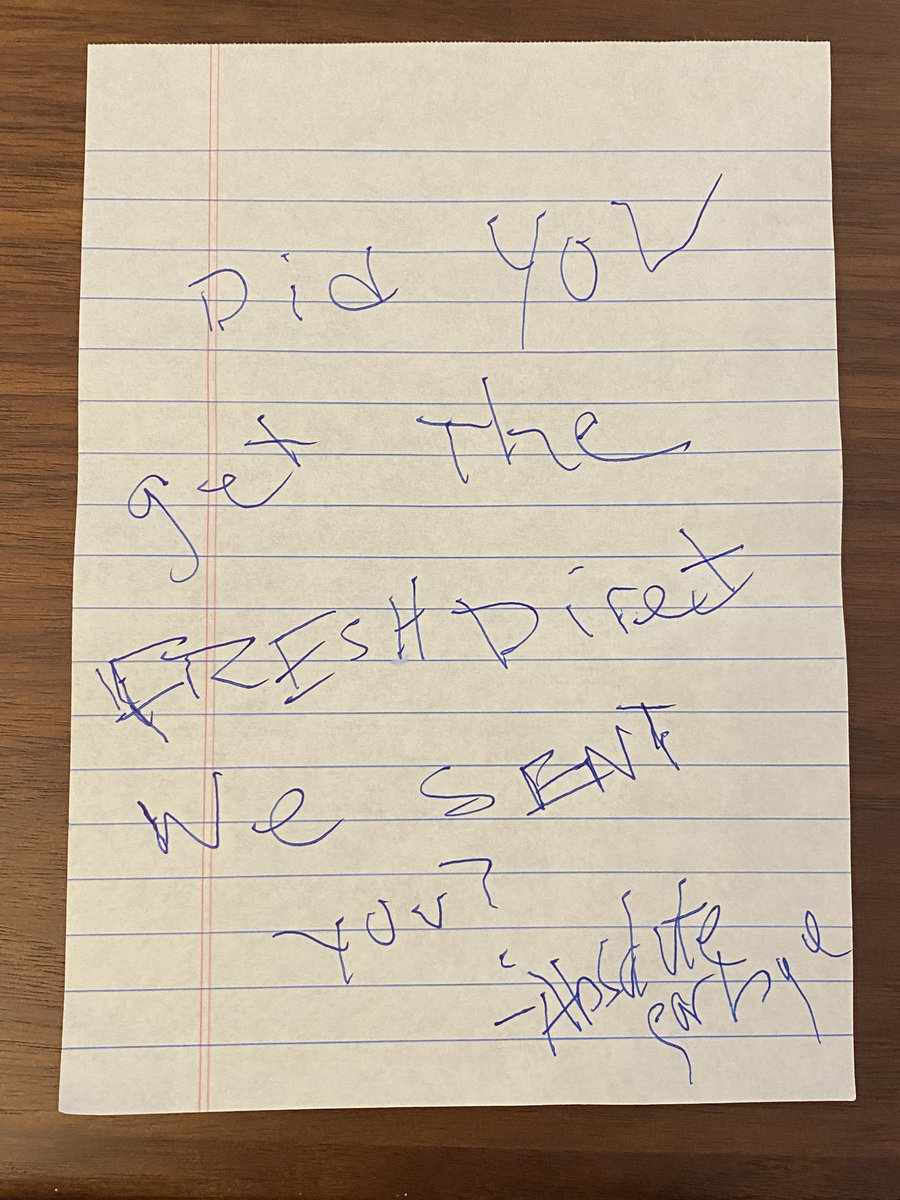 Did YOU
get The
FRESH Direct
We SENT
you?
- Absolute
garbage